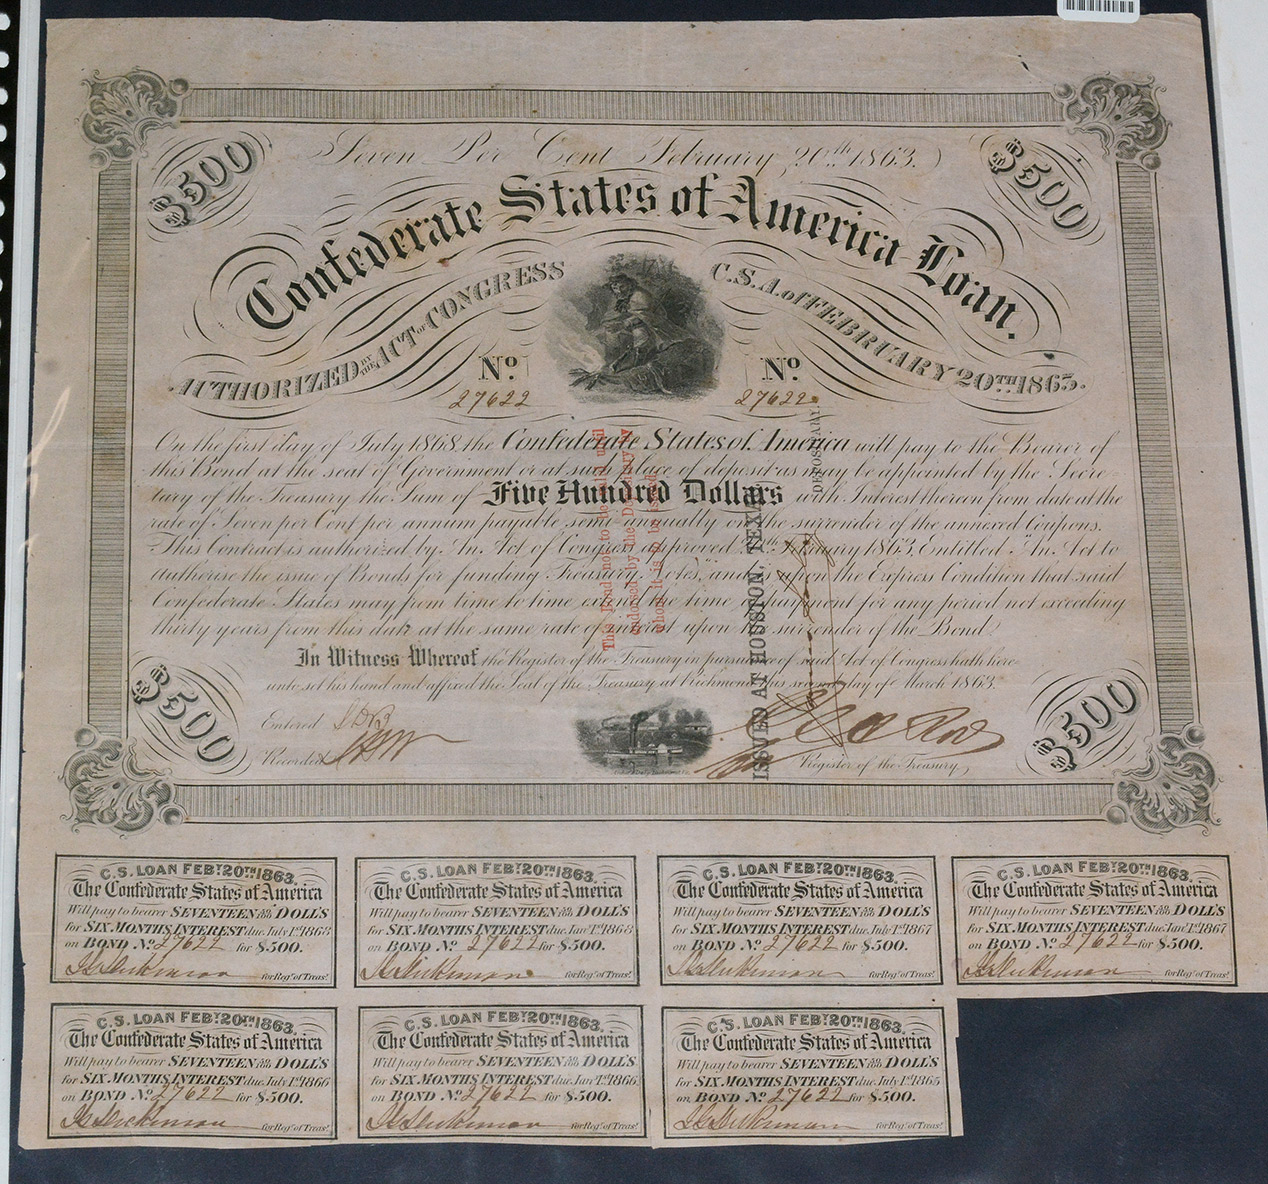 Seven Per Cent February 20th 1863.
$500
$500
Confederate States of America Loan.
AUTHORIZED BY THE ACT OF CONGRESS C.S.A. of FEBRUARY 20TH 1863.
No. No.
27622 27622
On the first day of July 1868 the Confederate States of America will pay to the Bearer of
this Bond at the seat of Government or at such place of deposit as may be appointed by the Secre-
tary of the Treasury the Sum of Five Hundred Dollars with Interest thereon from date at the
rate of Seven per Cent per annum payable semi annually on the surrender of the annexed Coupons.
This Contract is authorized by An Act of Congress approved February 1863, Entitled "An Act to
authorise the issue of Bonds for funding Treasury Notes," and upon the Express Condition that said
Confederate States may from time to time extend the time of payment for any period not exceeding
thirty years from this date at the same rate of interest upon the surrender of the Bond.
In Witness Whereof the Register of the Treasury in pursuance of said Act of Congress hath here-
unto set his hand and affixed the Seal of the Treasury at Richmond this second day of March 1863.
This Bond not to be valid until
endorsed by the Depositary by
whom it is to be issued
ISSUED AT HOUSTON, TEXAS
DEPOSITARY.
$500
$500
Entered
Recorded
Register of the Treasury
C.S. LOAN FEBY. 20TH 1863.
The Confederate States of America
Will pay to bearer SEVENTEEN 50/100 DOLL'S
for SIX MONTHS INTEREST due July 1st 1868
on BOND No. 27622 for $500.
for Regr. of Treasy.
C.S. LOAN FEBY. 20TH 1863.
The Confederate States of America
Will pay to bearer SEVENTEEN 50/100 DOLL'S
for SIX MONTHS INTEREST due Jany 1st 1868
on BOND No. 27622 for $500.
for Regr. of Treasy.
C.S. LOAN FEBY. 20TH 1863.
The Confederate States of America
Will pay to bearer SEVENTEEN 50/100 DOLL'S
for SIX MONTHS INTEREST due July 1st 1867
on BOND No. 27622 for $500.
for Regr. of Treasy.
C.S. LOAN FEBY. 20TH 1863.
The Confederate States of America
Will pay to bearer SEVENTEEN 50/100 DOLL'S
for SIX MONTHS INTEREST due Jany 1st 1867
on BOND No. 27622 for $500.
for Regr. of Treasy.
C.S. LOAN FEBY. 20TH 1863.
The Confederate States of America
Will pay to bearer SEVENTEEN 50/100 DOLL'S
for SIX MONTHS INTEREST due July 1st 1866
on BOND No. 27622 for $500.
for Regr. of Treasy.
C.S. LOAN FEBY. 20TH 1863.
The Confederate States of America
Will pay to bearer SEVENTEEN 50/100 DOLL'S
for SIX MONTHS INTEREST due Jany 1st 1866
on BOND No. 27622 for $500.
for Regr. of Treasy.
C.S. LOAN FEBY. 20TH 1863.
The Confederate States of America
Will pay to bearer SEVENTEEN 50/100 DOLL'S
for SIX MONTHS INTEREST due July 1st 1865
on BOND No. 27622 for $500.
for Regr. of Treasy.